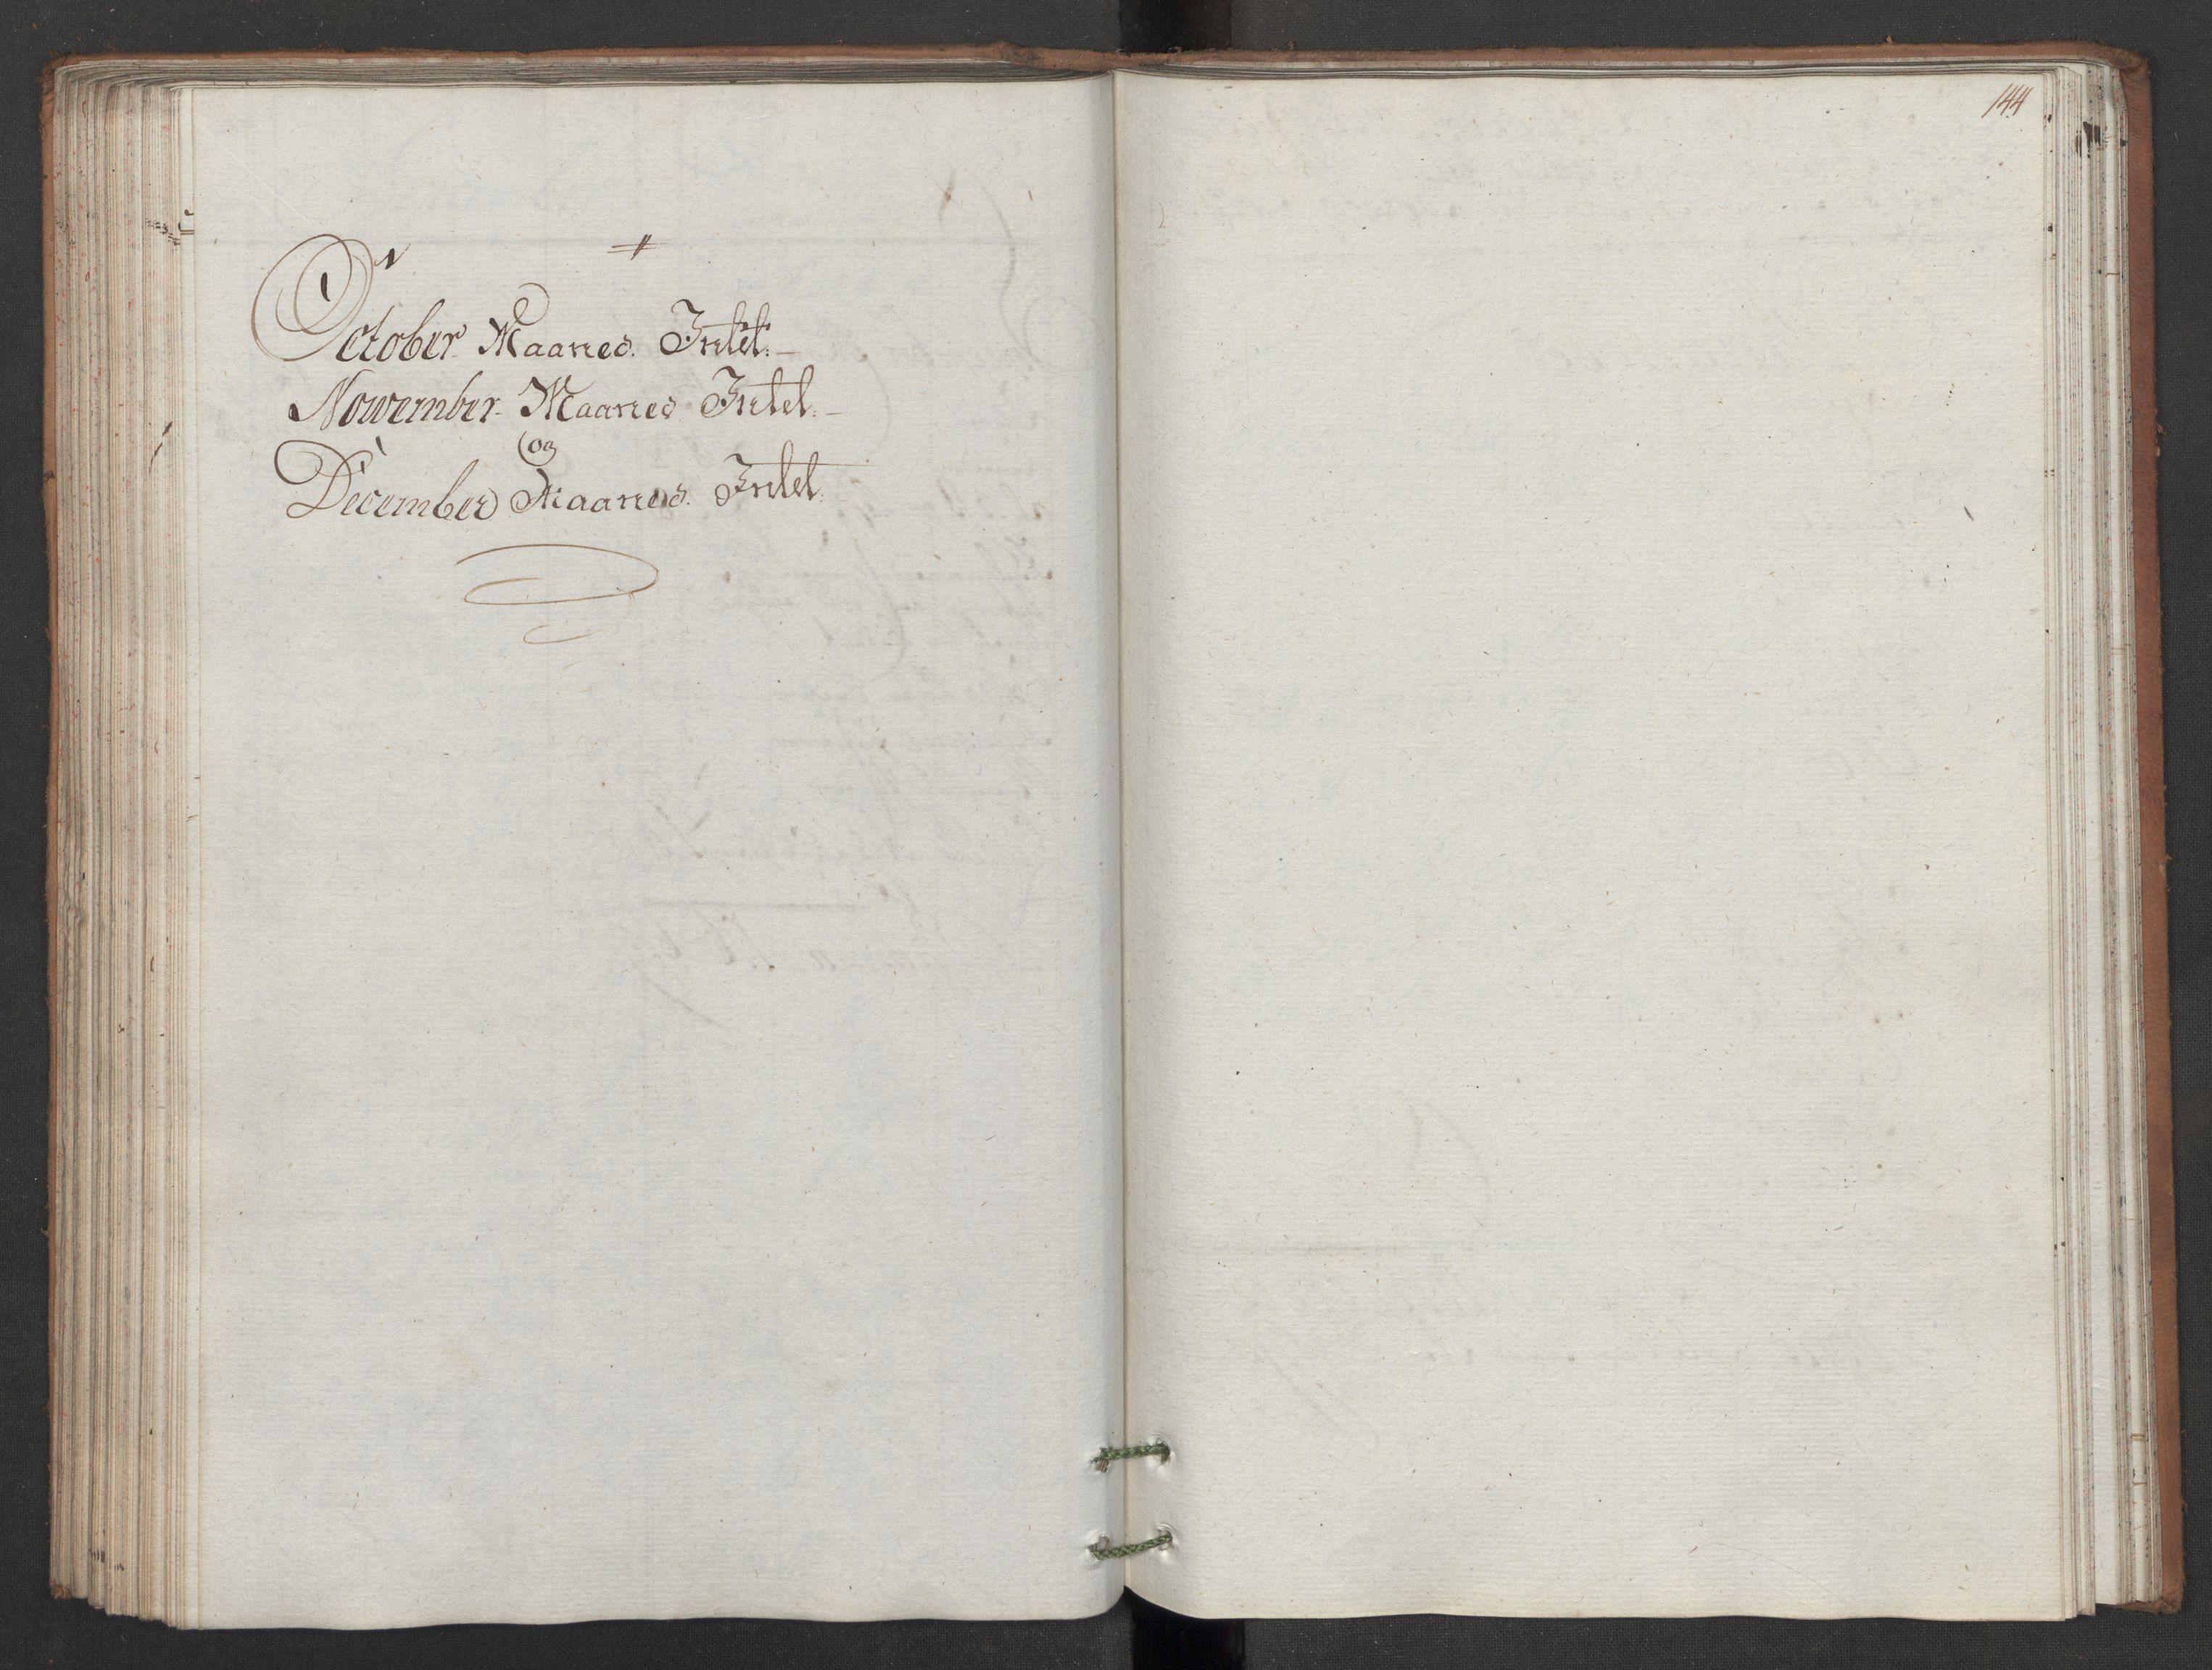 144
October Maaned. Intet. —
Nowember Maaned Intet. —
og
December Maaned. Intet.